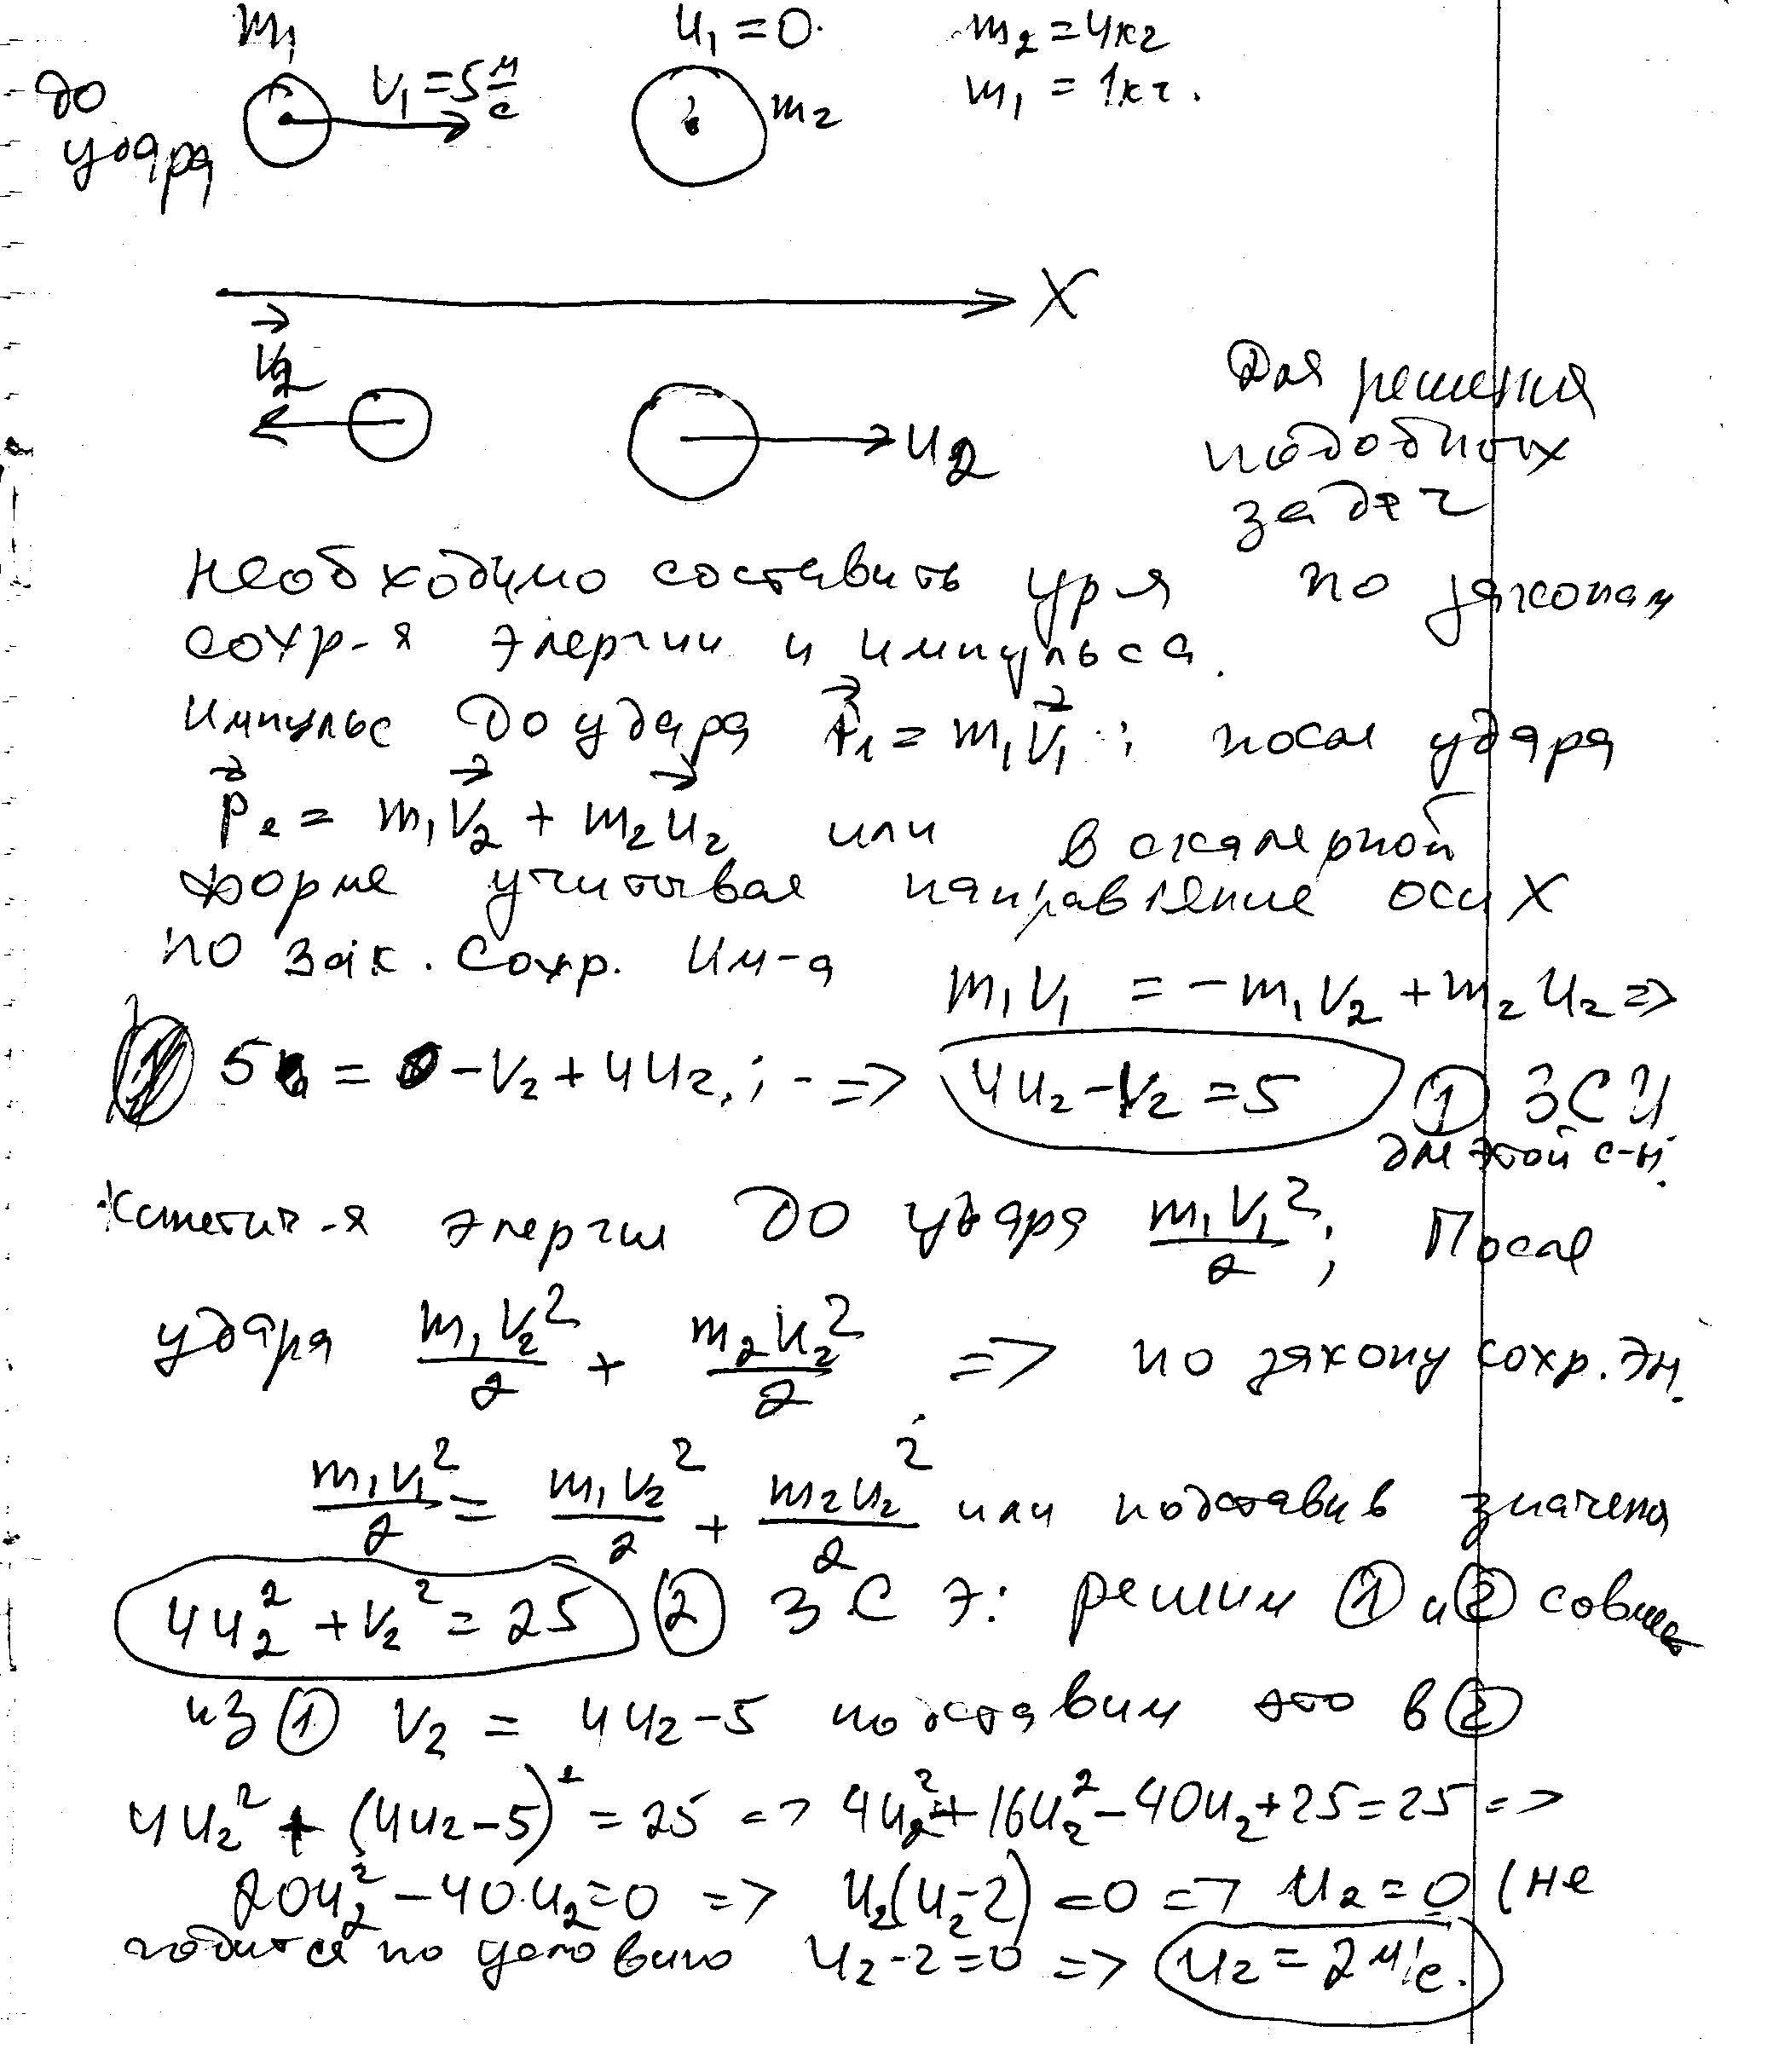 m₁ u₁ = 0. m₂ = 4кг
до v₁ = 5 м/с m₂ m₁ = 1кг.
удара
X
v₂
u₂
Для решения
подобных
задач
необходимо составить ур-я по законам
сохр-я энергии и импульса.
Импульс до удара P₁ = m₁v₁; после удара
P₂ = m₁v₂ + m₂u₂ или в скалярной
форме учитывая направление оси X
по зак. сохр. им-а m₁v₁ = -m₁v₂ + m₂u₂ =>
5 = -v₂ + 4u₂; => 4u₂ - v₂ = 5 ① ЗСИ
для этой с-мы.
Кинетич-я энергия до удара m₁v₁²/2; После
удара m₁v₂²/2 + m₂u₂²/2 => по закону сохр. эн.
m₁v₁²/2 = m₁v₂²/2 + m₂u₂²/2 или подставив значения
4u₂² + v₂² = 25 ② ЗСЭ: решим ① и ② совмес
из ① v₂ = 4u₂ - 5 подставим это в ②
4u₂² + (4u₂ - 5)² = 25 => 4u₂² + 16u₂² - 40u₂ + 25 = 25 =>
20u₂² - 40·u₂ = 0 => u₂(u₂ - 2) = 0 => u₂ = 0 (не
годится по условию u₂ - 2 = 0 => u₂ = 2 м/с.